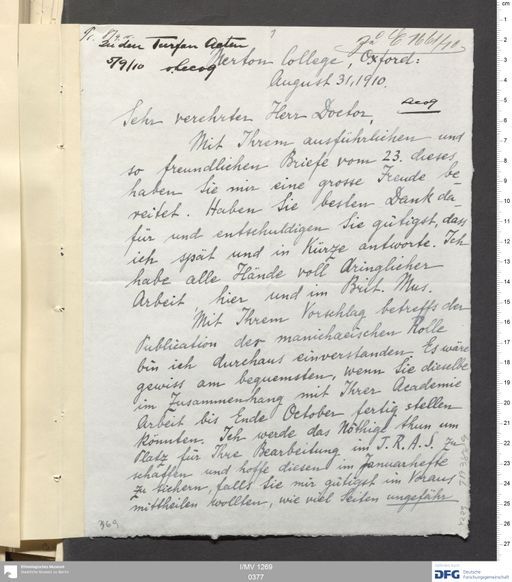 Zu den Turfan Acten
5/9/10 v. Lecoq
1
E 1661/10
Merton College, Oxford:
August 31, 1910.
Lecoq
Sehr verehrter Herr Doctor,
Mit Ihrem ausführlichen und
so freundlichen Briefe vom 23. dieses
haben Sie mir eine grosse Freude be-
reitet. Haben Sie besten Dank da-
für und entschuldigen Sie gütigst, dass
ich spät und in Kürze antworte. Ich
habe alle Hände voll dringlicher
Arbeit hier und im Brit. Mus.
Mit Ihrem Vorschlag betreffs der
Publication der manichaeischen Rolle
bin ich durchaus einverstanden. Es wäre
gewiss am bequemsten, wenn Sie dieselbe
im Zusammenhang mit Ihrer Academie
Arbeit bis Ende October fertig stellen
könnten. Ich werde das Nöthige thun um
Platz für Ihre Bearbeitung im J.R.A.S. zu
schaffen und hoffe diesen im Januarhefte
zu sichern, falls Sie mir gütigst im Voraus
mittheilen wollten, wie viel Seiten ungefähr
369
Ethnologisches Museum
Staatliche Museen zu Berlin
I/MV 1269
0377
gefördert durch
DFG Deutsche
Forschungsgemeinschaft
cm
1
2
3
4
5
6
7
8
9
10
11
12
13
14
15
16
17
18
19
20
21
22
23
24
25
26
27